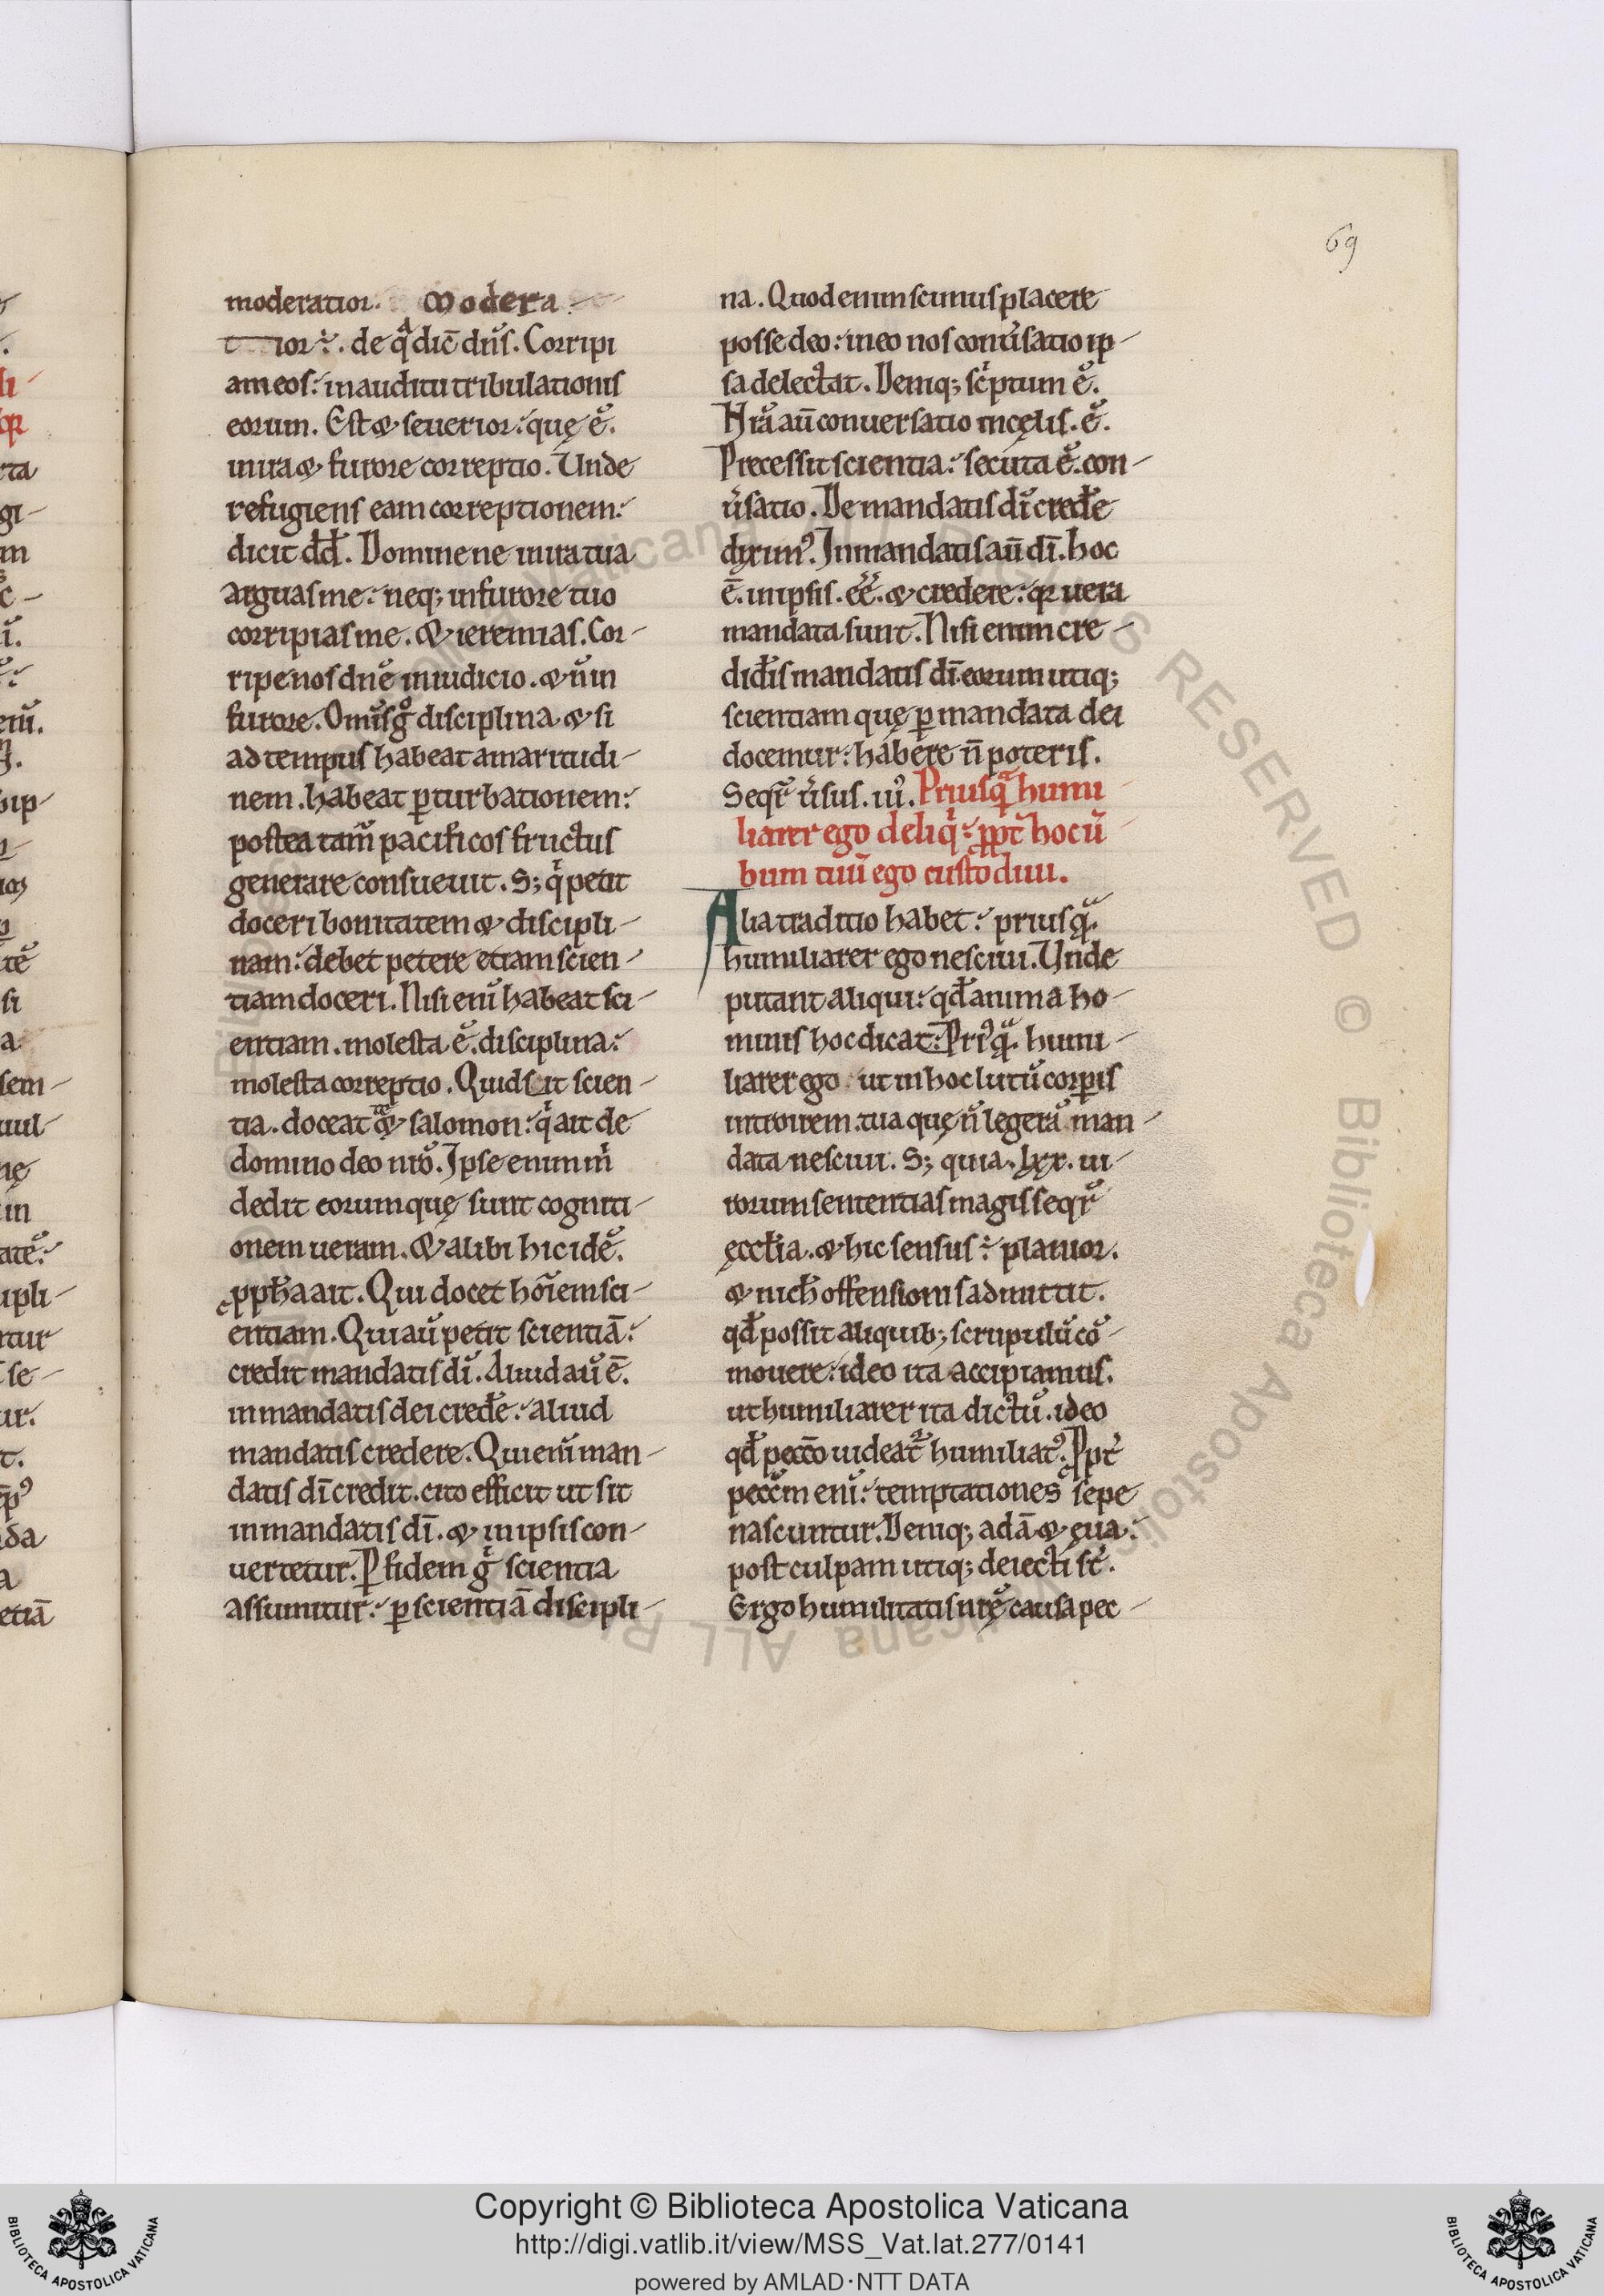 69
moderatior. Modera-
tior. de q̾ dic̄ dñs. Corripi
am eos: in auditu tribulationis
eorum. Est & seuerior: quę ē.
in ira & furore correptio. Unde
refugiens eam correptionem:
dicit dd̄. Domine ne in ira tua
arguas me: neq; in furore tuo
corripias me. & ieremias. Cor-
ripe nos dn̄e in iudicio. & n̄ in
furore. Om̄is gͦ disciplina & si
ad tempus habeat amaritudi-
nem. habeat ꝑturbationem:
postea tam̄ pacificos fructus
generare consueuit. S; qͥ petit
doceri bonitatem & discipli-
nam: debet petere etiam scien-
tiam doceri. Nisi enī habeat sci-
entiam. molesta ē. disciplina:
molesta correptio. Quid sit scien-
tia. doceat & salomon: qͥ ait de
domino deo nr̄o. Ipse enim mͥ
dedit eorum quę sunt cogniti-
onem ueram. & alibi hic idē.
ꝓpħa ait. Qui docet hoīem sci-
entiam. Qui aū petit scientiā:
credit mandatis dī. Aliud aū ē.
in mandatis dei credē: aliud
mandatis credere. Qui enī man-
datis dī credit. cito efficit ut sit
in mandatis dī. & in ipsis con-
uertetur. Ꝑ fidem gͥ scientia
assumitur: ꝑ scientiā discipli-
na. Quod enim scimus placere
posse deo: in eo nos conūsatio ip-
sa delectat. Deniq; scͥptum ē.
Nr̄a aū conuersatio in cęlis. ē.
Precessit scientia: secuta ē. con-
ūsatio. De mandatis dī credē
diximꝰ. In mandatis aū dī. hoc
ē. in ipsis. eē. & credere: qꝛ uera
mandata sunt. Nisi enim cre-
did̄is mandatis dī. eorum utiq;
scientiam quę ꝑ mandata dei
docemur: habere n̄ poteris.
Seqr̄ ūsus. iiiͦ. Priusqͣ humi
liarer ego deliqͥ: ꝓpt̄ hoc ū
bum tuū ego custodiui.
Alia traditio habet: priusqͣ.
humiliarer ego nesciui. Unde
putant aliqui: qđ anima ho-
minis hoc dicat: Priꝰqͣ. humi-
liarer ego ut in hoc lutū corꝑis
introirem. tua quę n̄ legerā man-
data nesciui. S; quia. lxx. ui-
rorum sententias magis seqr̄
ęccl̄ia. & hic sensus: planior.
& nich̄ offensionis admittit.
qđ possit aliquib; scrupulū cō-
mouere: ideo ita accipiamus.
ut humiliarer ita dictū. ideo
qđ pecc̄o uideat̄ humiliatꝰ. Ꝓpt̄
pecc̄m enī: temptationes sępe
nascuntur. Deniq; adā & eua:
post culpam utiq; deiecti st̄.
Ergo humilitatis nr̄ę causa pec-
Copyright © Biblioteca Apostolica Vaticana
http://digi.vatlib.it/view/MSS_Vat.lat.277/0141
powered by AMLAD·NTT DATA